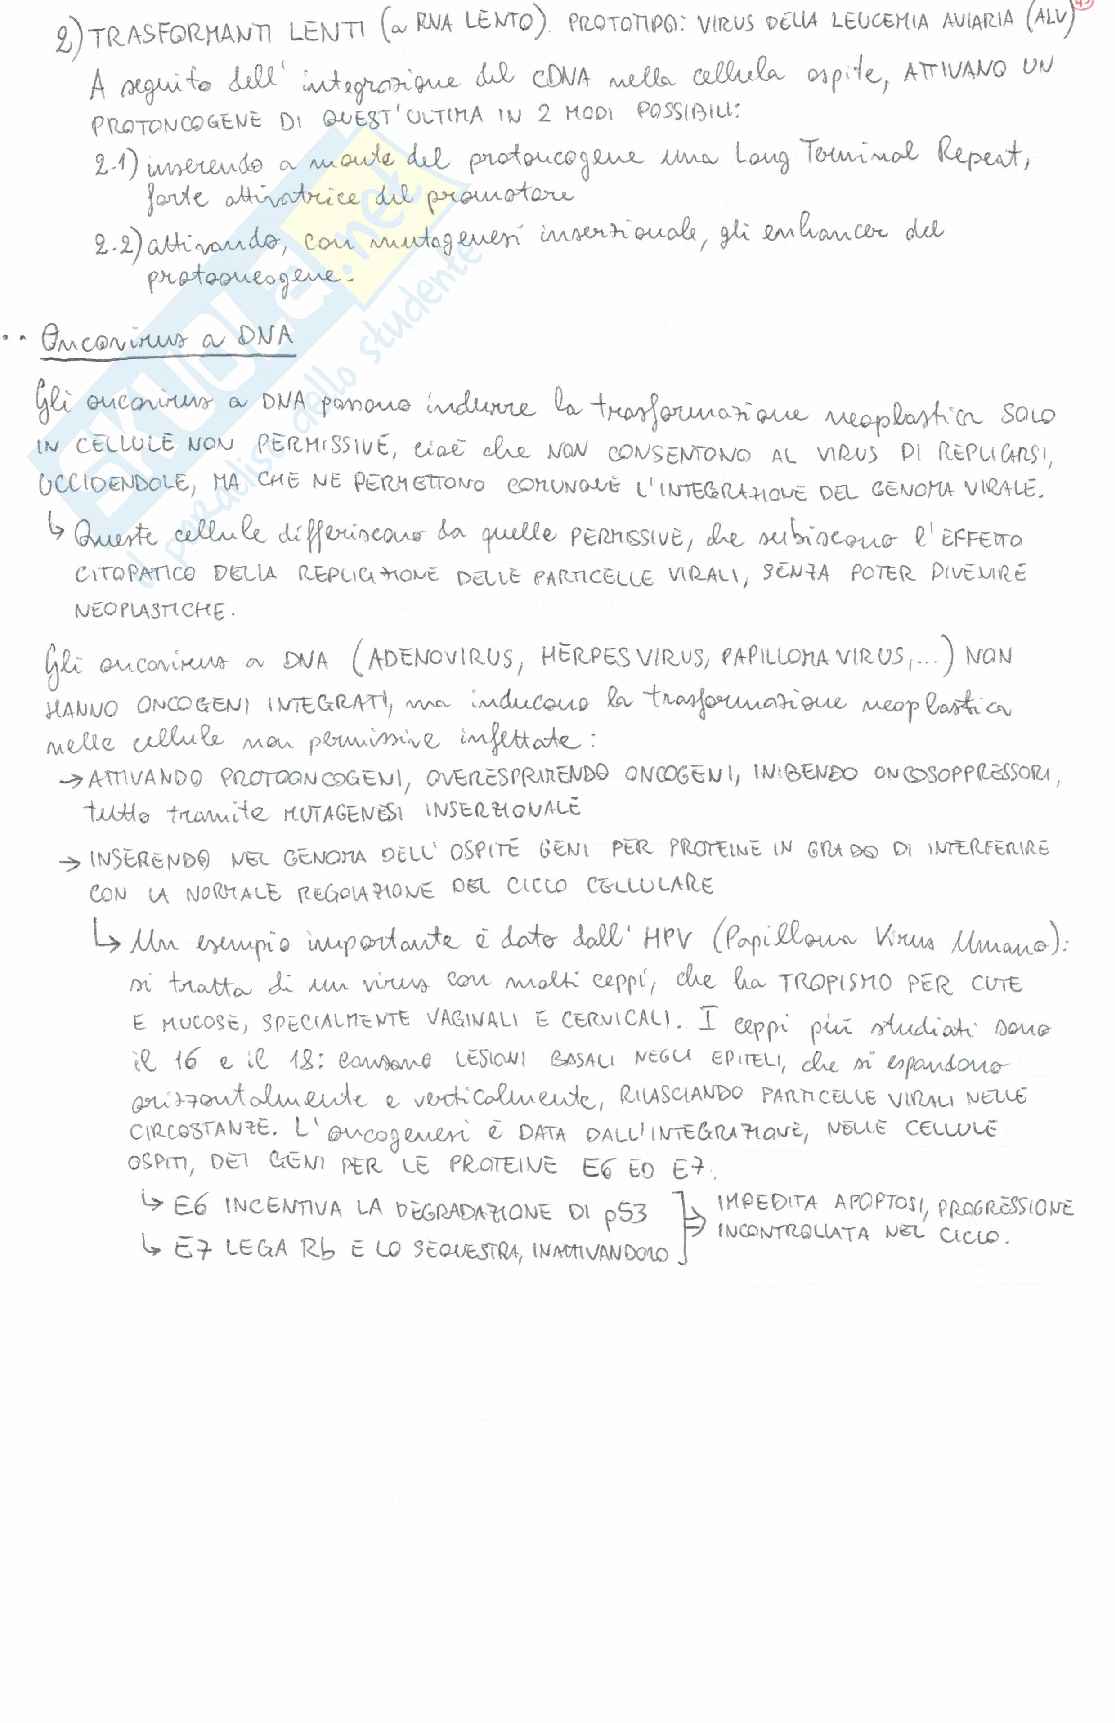 2) TRASFORMANTI LENTI (a RNA LENTO). PROTOTIPO: VIRUS DELLA LEUCEMIA AVIARIA (ALV)
A seguito dell'integrazione del cDNA nella cellula ospite, ATTIVANO UN
PROTONCOGENE DI QUEST'ULTIMA IN 2 MODI POSSIBILI:
2.1) inserendo a monte del protoncogene una Long Terminal Repeat,
forte attivatrice del promotore
2.2) attivando, con mutagenesi inserzionale, gli enhancer del
protooncogene.
Oncovirus a DNA
Gli oncovirus a DNA possono indurre la trasformazione neoplastica SOLO
IN CELLULE NON PERMISSIVE, cioè che NON CONSENTONO AL VIRUS DI REPLICARSI,
UCCIDENDOLE, MA CHE NE PERMETTONO COMUNQUE L'INTEGRAZIONE DEL GENOMA VIRALE.
↳ Queste cellule differiscono da quelle PERMISSIVE, che subiscono l'EFFETTO
CITOPATICO DELLA REPLICAZIONE DELLE PARTICELLE VIRALI, SENZA POTER DIVENIRE
NEOPLASTICHE.
Gli oncovirus a DNA (ADENOVIRUS, HERPESVIRUS, PAPILLOMAVIRUS,...) NON
HANNO ONCOGENI INTEGRATI, ma inducono la trasformazione neoplastica
nelle cellule non permissive infettate:
→ ATTIVANDO PROTOONCOGENI, OVERESPRIMENDO ONCOGENI, INIBENDO ONCOSOPPRESSORI,
tutto tramite MUTAGENESI INSERZIONALE
→ INSERENDO NEL GENOMA DELL'OSPITE GENI PER PROTEINE IN GRADO DI INTERFERIRE
CON LA NORMALE REGOLAZIONE DEL CICLO CELLULARE
↳ Un esempio importante è dato dall'HPV (Papilloma Virus Umano):
si tratta di un virus con molti ceppi, che ha TROPISMO PER CUTE
E MUCOSE, SPECIALMENTE VAGINALI E CERVICALI. I ceppi più studiati sono
il 16 e il 18: causano LESIONI BASALI NEGLI EPITELI, che si espandono
orizzontalmente e verticalmente, RILASCIANDO PARTICELLE VIRALI NELLE
CIRCOSTANZE. L'oncogenesi è DATA DALL'INTEGRAZIONE, NELLE CELLULE
OSPITI, DEI GENI PER LE PROTEINE E6 ED E7.
↳ E6 INCENTIVA LA DEGRADAZIONE DI p53
↳ E7 LEGA Rb E LO SEQUESTRA, INATTIVANDOLO
→ IMPEDITA APOPTOSI, PROGRESSIONE
INCONTROLLATA NEL CICLO.
SKUOLA.net
il paradiso dello studente